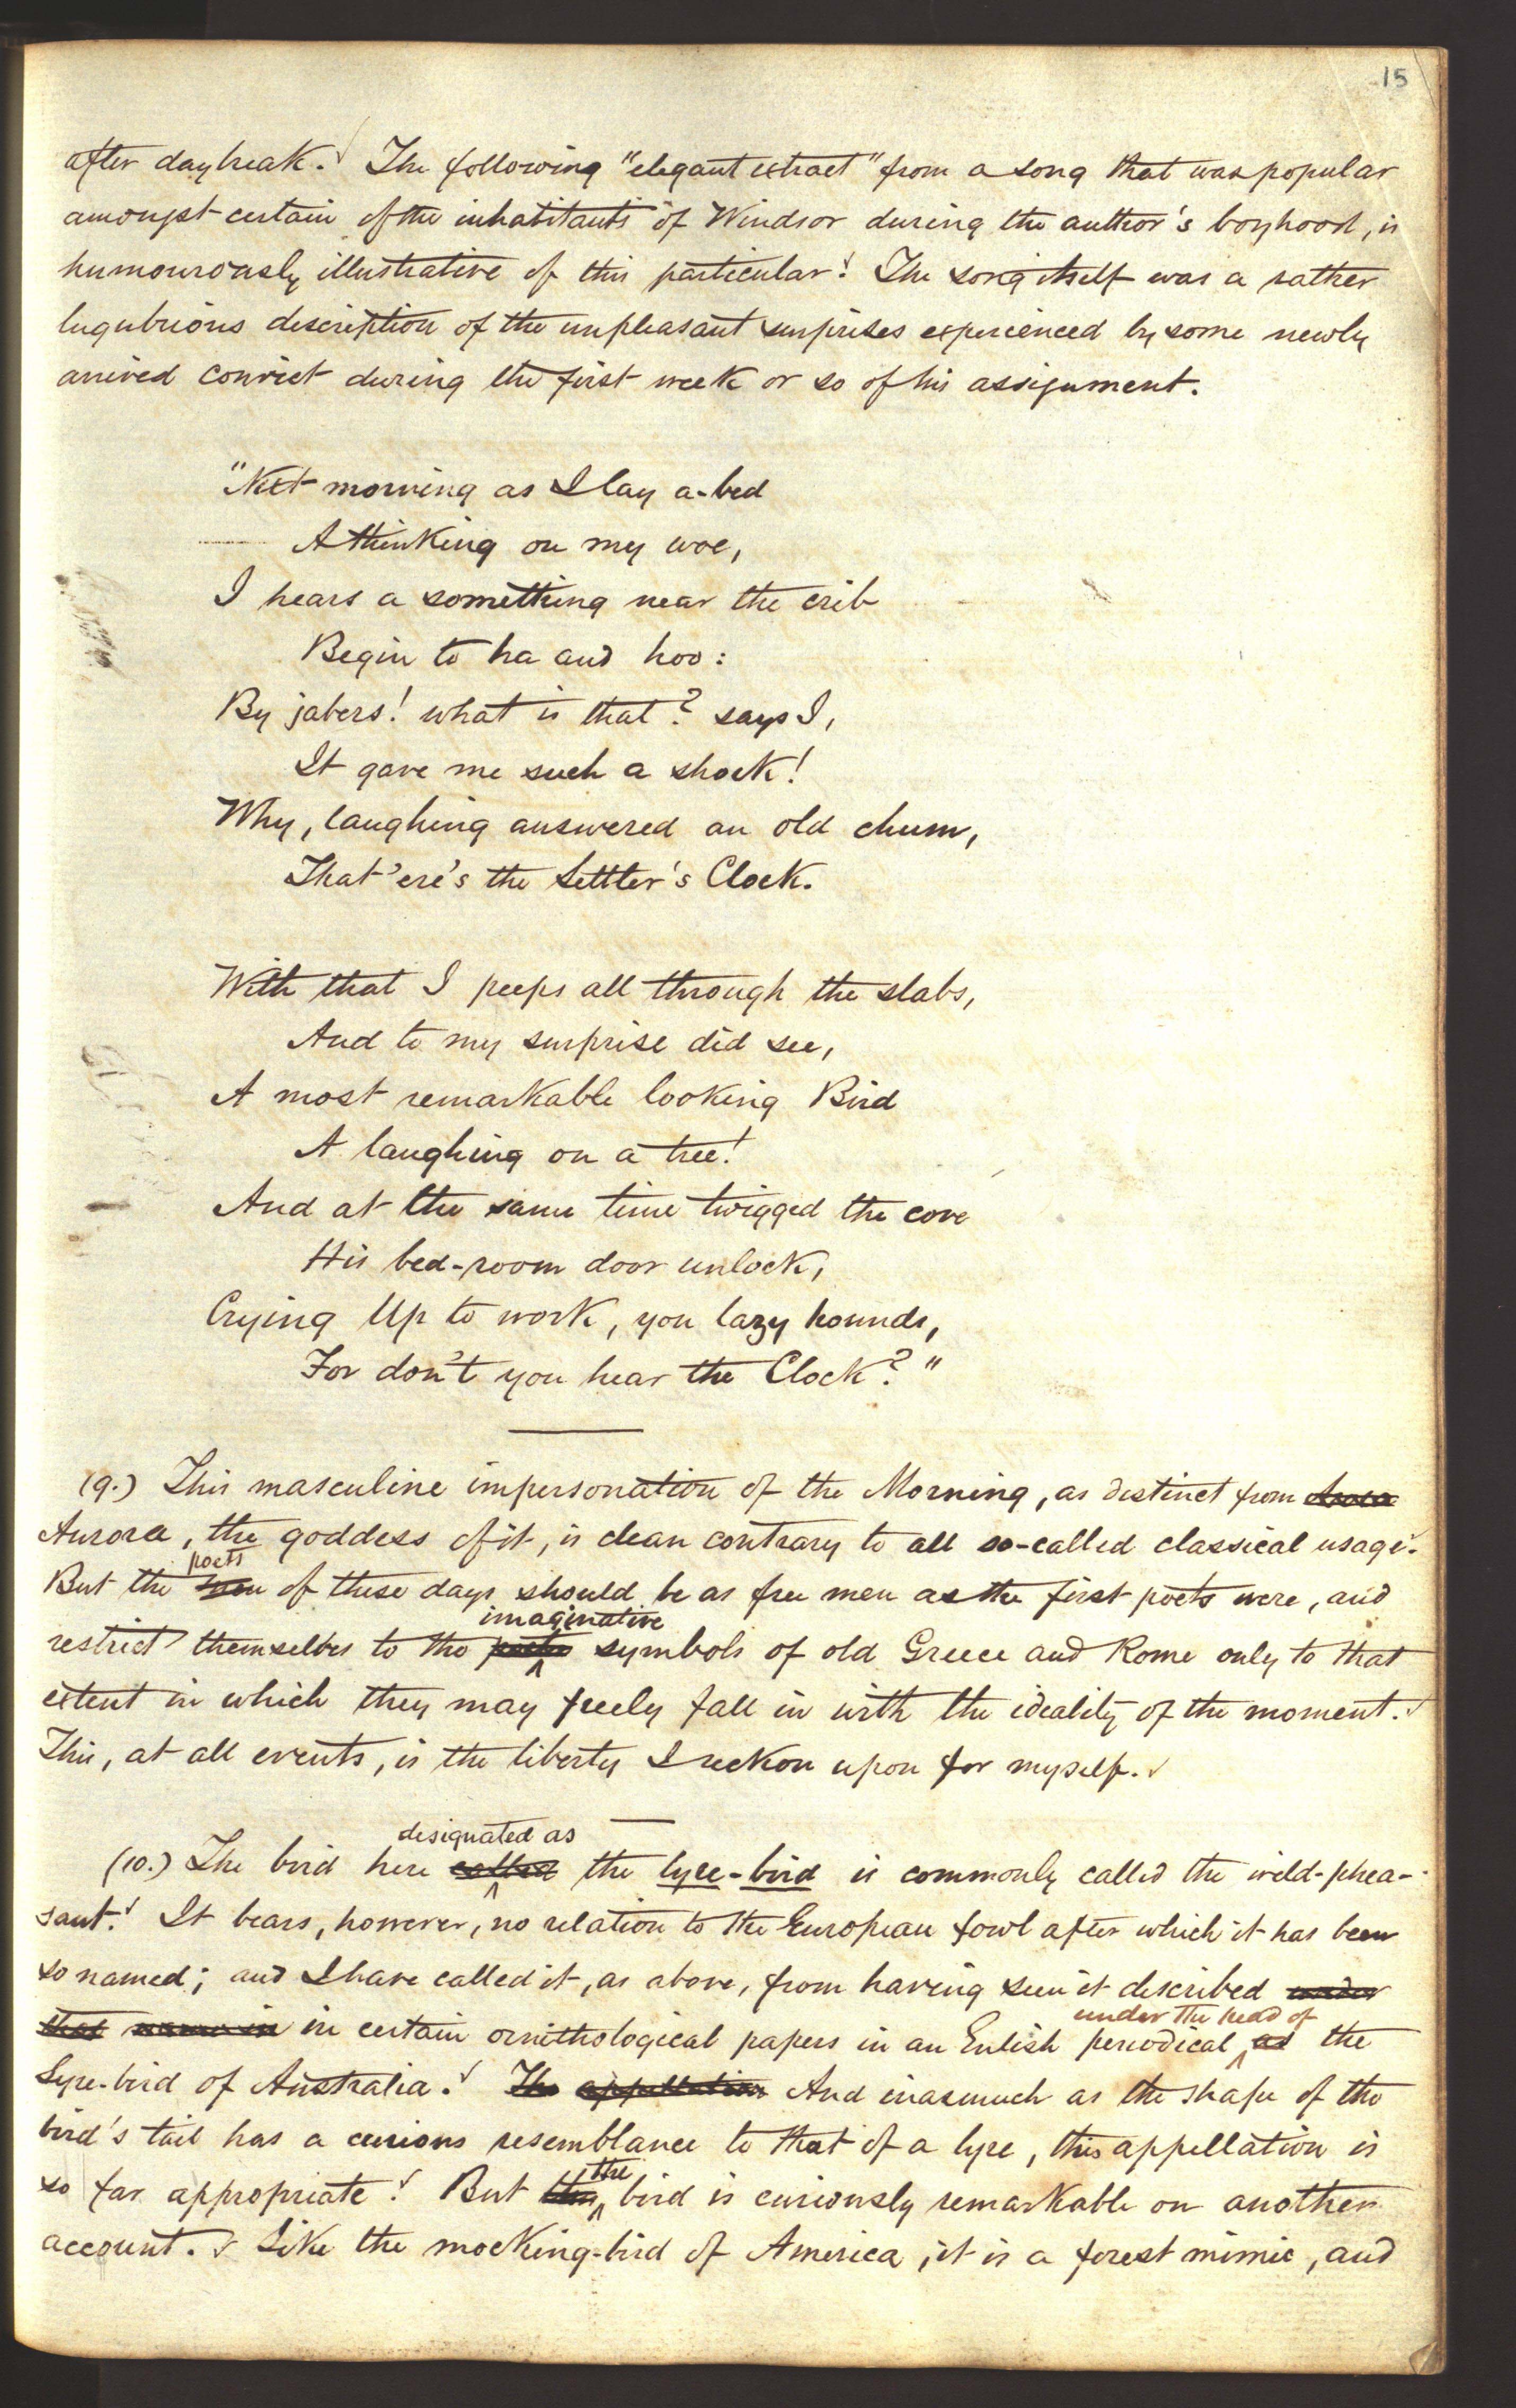 15
after daybreak. The following "elegant extract" from a song that was popular
amongst certain of the inhabitants of Windsor during the author's boyhood, is
humourously illustrative of this particular. The song itself was a rather
lugubrious description of the unpleasant surprises experienced by some newly
arrived convict during the first week or so of his assignment.
"Next morning as I lay a-bed
A thinking on my woe,
I hears a something near the crib
Begin to ha and hoo:
By jabers! what is that? says I,
It gave me such a shock!
Why, laughing answered an old chum,
That 'ere's the Settler's Clock.
With that I peeps all through the slabs,
And to my surprise did see,
A most remarkable looking Bird
A laughing on a tree!
And at the same time twigged the cove
His bed-room door unlock,
Crying Up to work, you lazy hounds,
For don't you hear the Clock?"
(9.) This masculine impersonation of the Morning, as distinct from
Aurora, the goddess of it, is clean contrary to all so-called classical usage.
poets
But the men of these days should be as free men as the first poets were, and
imaginative
restrict themselves to the poetic symbols of old Greece and Rome only to that
extent in which they may freely fall in with the ideality of the moment.
This, at all events, is the liberty I reckon upon for myself.
designated as
(10.) The bird here called the lyre-bird is commonly called the wild-phea-
sant. It bears, however, no relation to the European fowl after which it has been
so named; and I have called it, as above, from having seen it described under
under the head of
that name in in certain ornithological papers in an Enlish periodical as the
Lyre-bird of Australia. The appellation And inasmuch as the shape of the
bird's tail has a curious resemblance to that of a lyre, this appellation is
the
so far appropriate. But this bird is curiously remarkable on another
account. Like the mocking-bird of America, it is a forest mimic, and